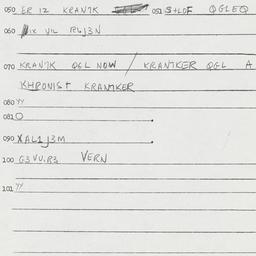 050 ER 12 KRANTK 051 S+LOF QGLEQ
060 VIL RLJ3N
070 KRANTK QGL NOW / KRANTKER QGL A
KHRONIST KRANTKER
080 YY
081 O
090 XAL1J3M
100 G3VU.R3 VERN
101 YY